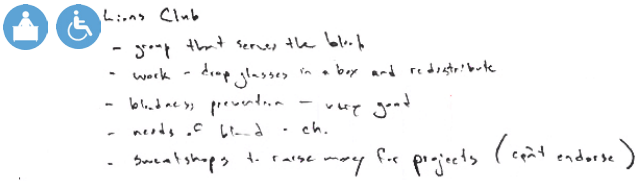 Lions Club
- group that serves the blind
- work - drop glasses in a box and redistribute
- blindness prevention - very good
- needs of blind - ch.
- sweatshops to raise money for projects (can't endorse)